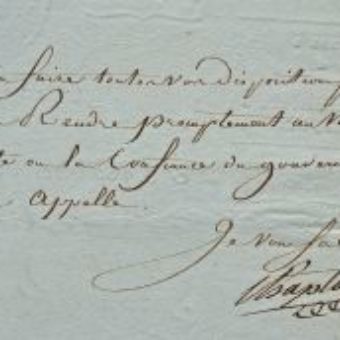 faire toutes vos dispositions p
Rendre promptement au
ou la Confiance du gouver
Appelle.
Je vous sa
Chapta